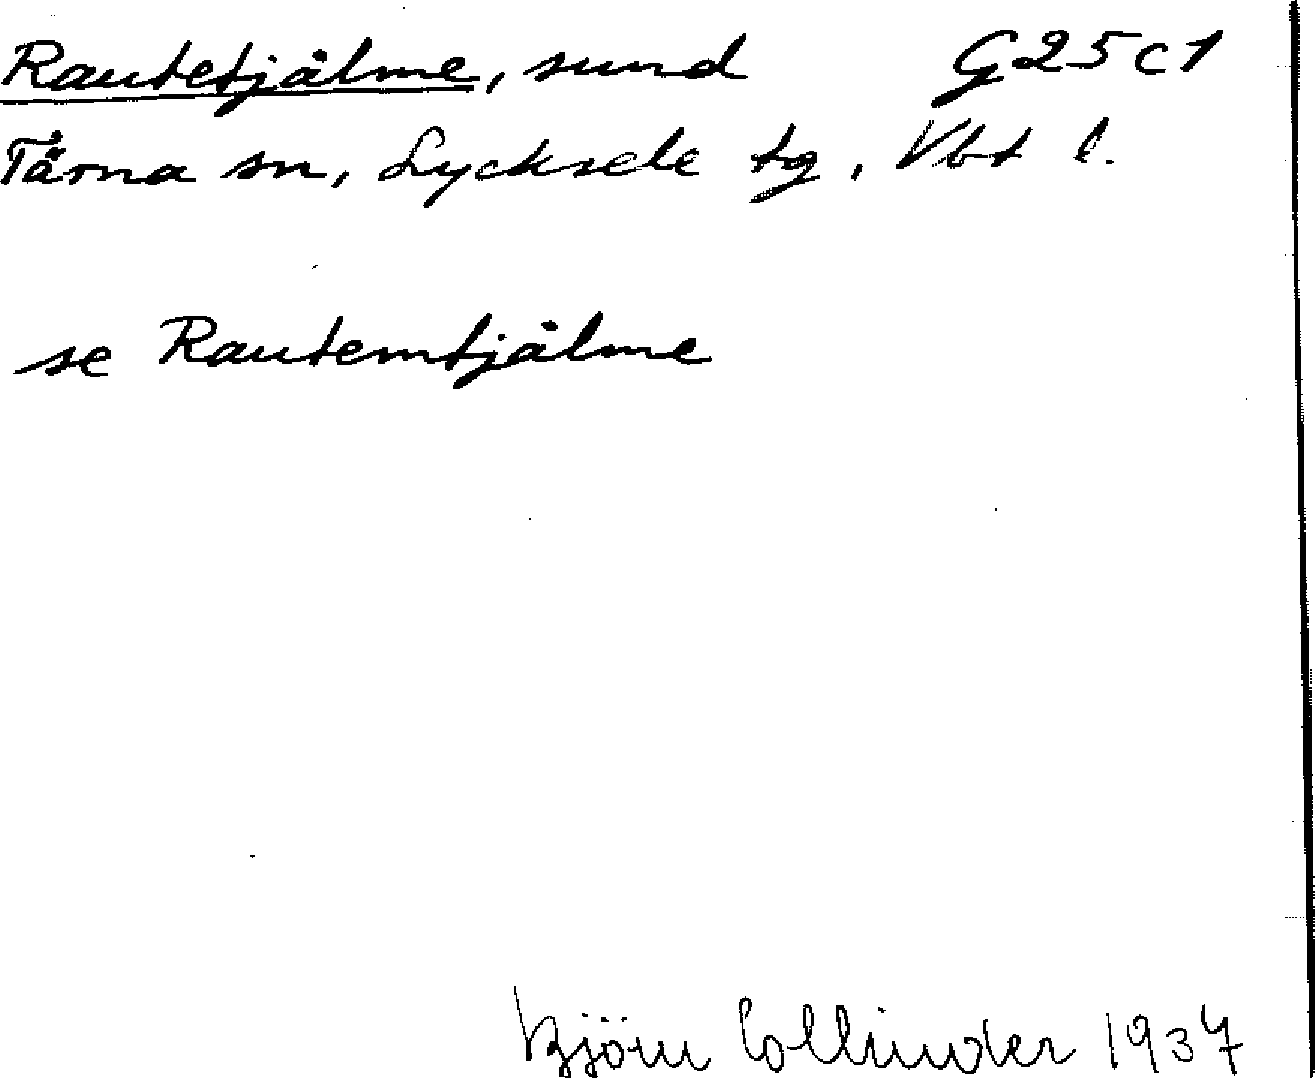 Rautetjålme, sund G25c1
Tärna sn, Lycksele tg, Vbt l.
se Rautemtjålme
Björn Collinder 1937